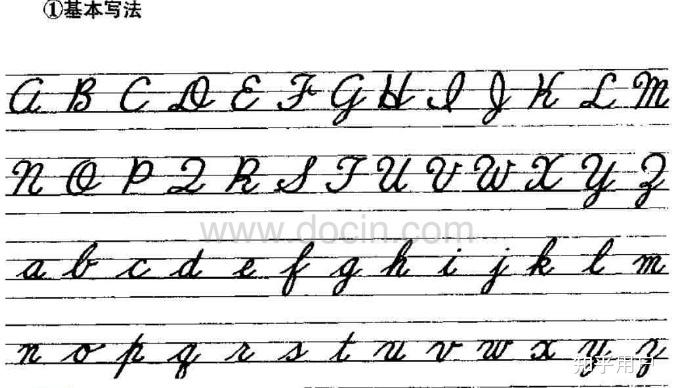 ①基本写法
A B C D E F G H I J K L M
N O P Q R S T U V W X Y Z
www.docin.com
a b c d e f g h i j k l m
n o p q r s t u v w x y z
知乎用户